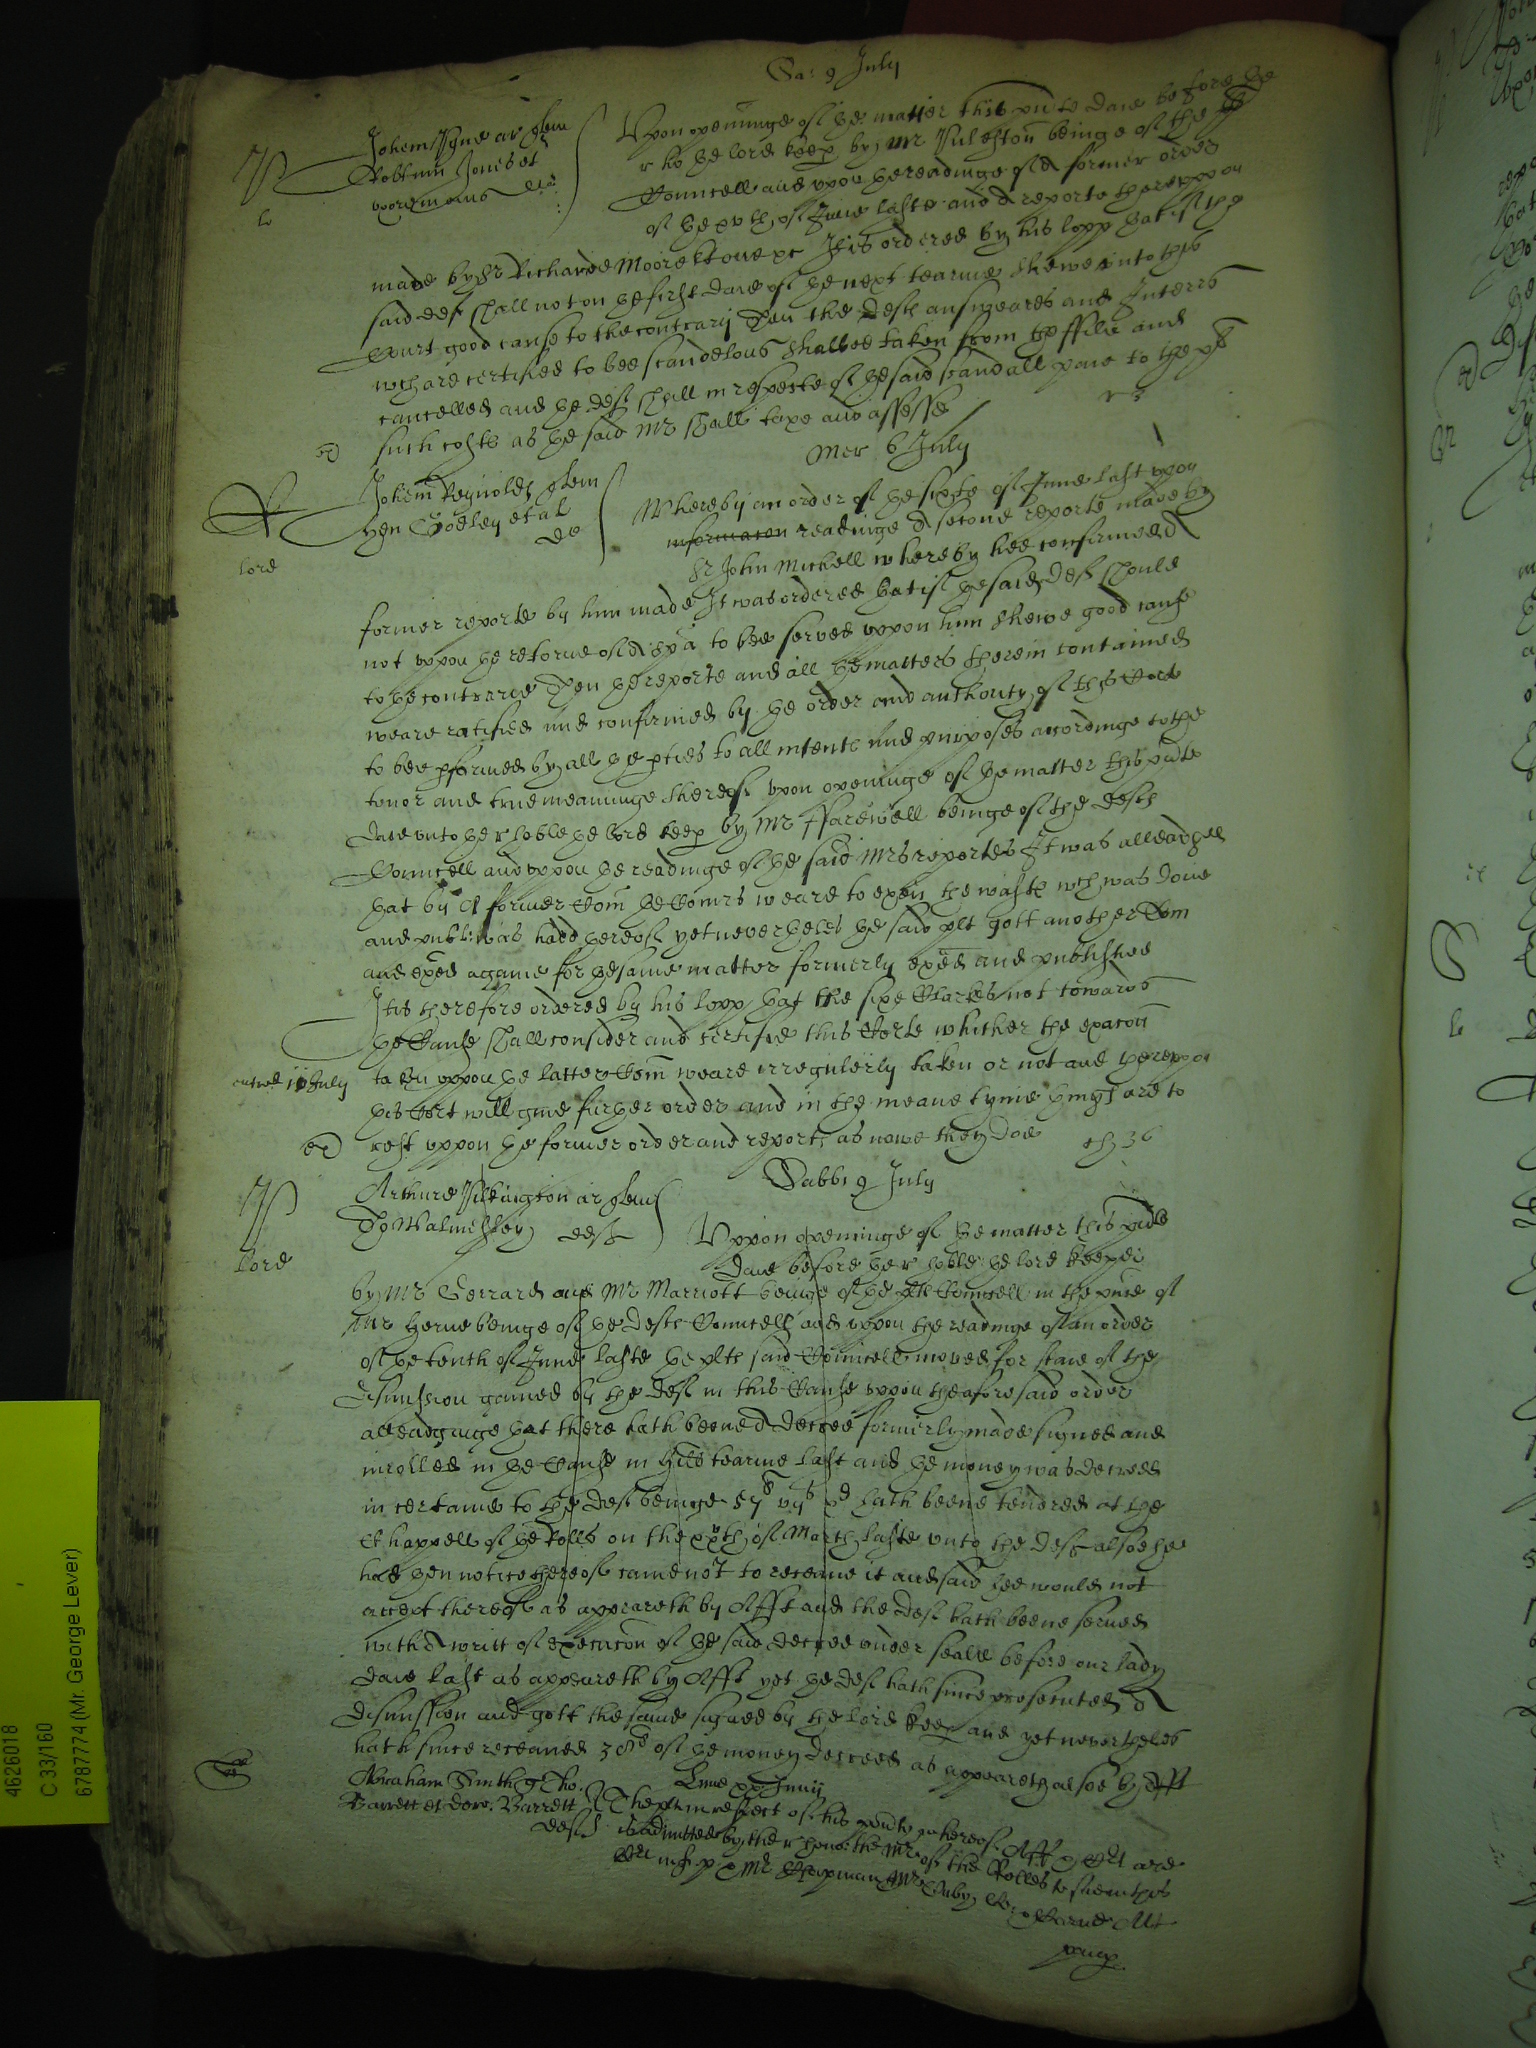 Sa: 9 July
Johem Pyne ar quem
Robtum Jones et
uxorem eius def
Upon openinge of the matter this pnte daie before the
r ho: the lord keep by Mr Puleston beinge of the plts
Councell and upon the readinge of a former order
of the xvth of June laste and a reporte thereuppon
made by Sr Richarde Moore It is ordered by his lopp that if the
said def shall not on the first daie of the next tearme shewe unto this
Court good cause to the contrary Then the defts answeares and Interrs
wch are certified to bee scandelous shalbee taken from the ffile and
cancelled and the deft shall in respecte of the said scandall paie to the plt
such costs as the said Mr shall taxe and assesse
Mer 6 July
Johem Reynoldes quem
Hen Godley et al
def
lord
Whereby an order of the sixte of June last upon
informacon readinge a second reporte made by
Sr John Michell whereby hee confirmed a
former reporte by him made It was ordered that if the said deft should
not uppon the retorne of a spa to bee served uppon him shewe good cause
to the contrarie Then the reporte and all the matters therein contained
weare ratified and confirmed by the order and authority of this Corte
to bee pformed by all the pties to all intents and purposes accordinge to the
tenor and true meaninge thereof upon openinge of the matter this pnte
daie unto the r hoble the lord keep by Mr ffarewell beinge of the defts
Councell and uppon the readinge of the said Mrs reportes It was alleadged
that by a former Com the Comrs weare to exãie the waste wch was done
and publ: was hadd thereof yet nevertheles the said plt gott another Com
and exãed againe for the same matter formerly exãed and published
It is therefore ordered by his lopp that the sixe Clarkes not towards
the Cause shall consider and certifie this Corte whither the exacon
entred 11 July
taken uppon the latter Com weare irregulerly taken or not and thereuppon
this Cort will give further order and in the meane tyme thinges are to
rest uppon the former order and report as nowe they doe
Sabbi 9 July
Arthure Pilkington ar quer
Tho Walmesley deft
lord
Uppon openinge of the matter this pnte
daie before the r hoble the lord keeper
by Mr Gerrard and Mr Marriott beinge of the plts Councell in the pnce of
Mr Herne beinge of the defts Councell and uppon the readinge of an order
of the tenth of June laste the plts said Councell moved for staie of the
dismission gained by the deft in this Cause uppon the aforesaid order
alleadginge that there hath beene a decree formerly made signed and
inrolled in the Cause in Hill tearme last and the money was decreed
in certaine to the deft beinge 57l vjs d hath beene tendred at the
Chappell of the Rolls on the xxth of March laste unto the deft also he
had then notice thereof came not to receave it and said hee would not
accept thereof as appeareth by Afft and the deft hath beene served
with a writt of execucon of the said decree under seale before our lady
daie last as appeareth by Afft yet the deft hath since prosecuted a
dismission and gott the same signed by the lord keep and yet nevertheles
hath since receaved 30s of the money decreed as appeareth also by Afft
Abraham Smith q Tho.
Barrett et Doro. Barrett
defts
Lune xx Junij
The plt in respect of his povtie whereof Afft &
is admitted by the r hono: the Mr of the Rolles to sue in this
Mr Chapman Mr
4626018
C 33/160
67877774 (Mr. George Lever)